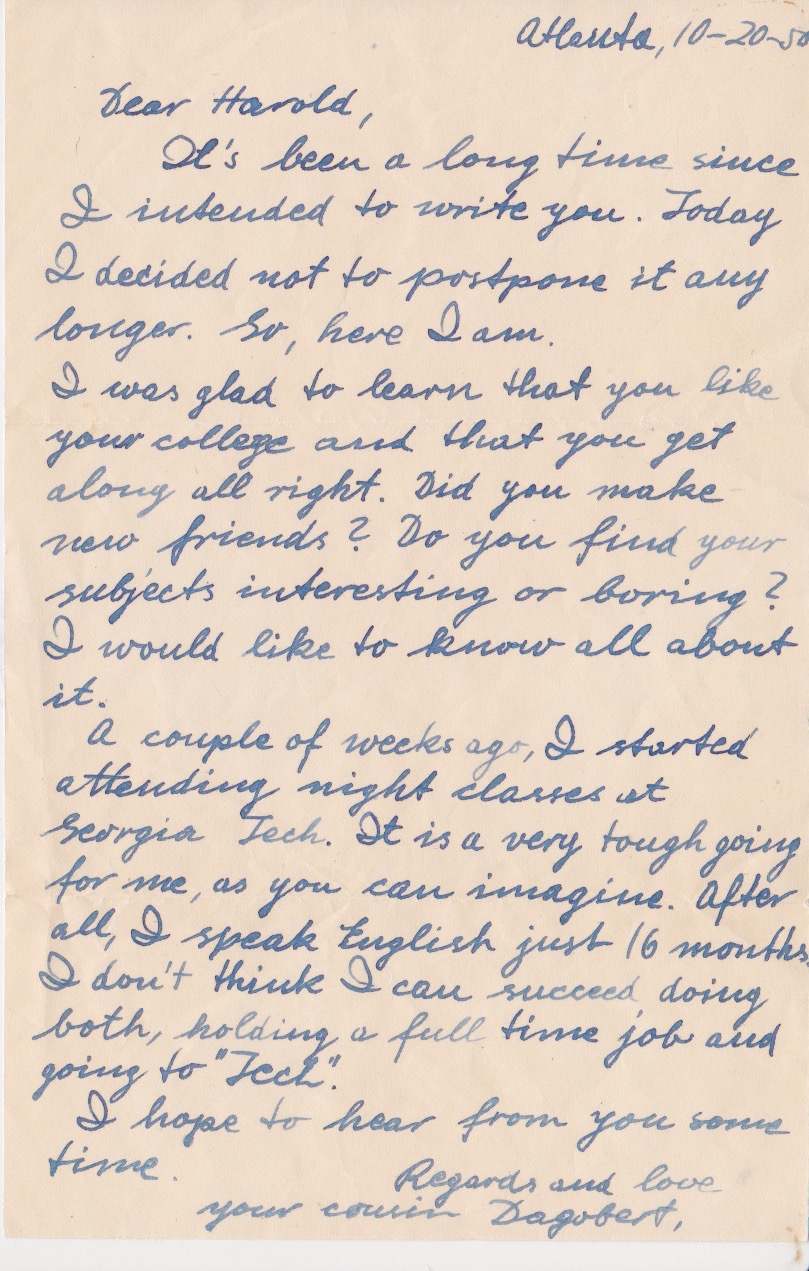 Atlanta, 10-20-50
Dear Harold,
It's been a long time since
I intended to write you. Today
I decided not to postpone it any
longer. So, here I am.
I was glad to learn that you like
your college and that you get
along all right. Did you make
new friends? Do you find your
subjects interesting or boring?
I would like to know all about
it.
A couple of weeks ago, I started
attending night classes at
Georgia Tech. It is a very tough going
for me, as you can imagine. After
all, I speak English just 16 months.
I don't think I can succeed doing
both, holding a full time job and
going to "Tech".
I hope to hear from you some
time.
Regards and love
your cousin Dagobert,